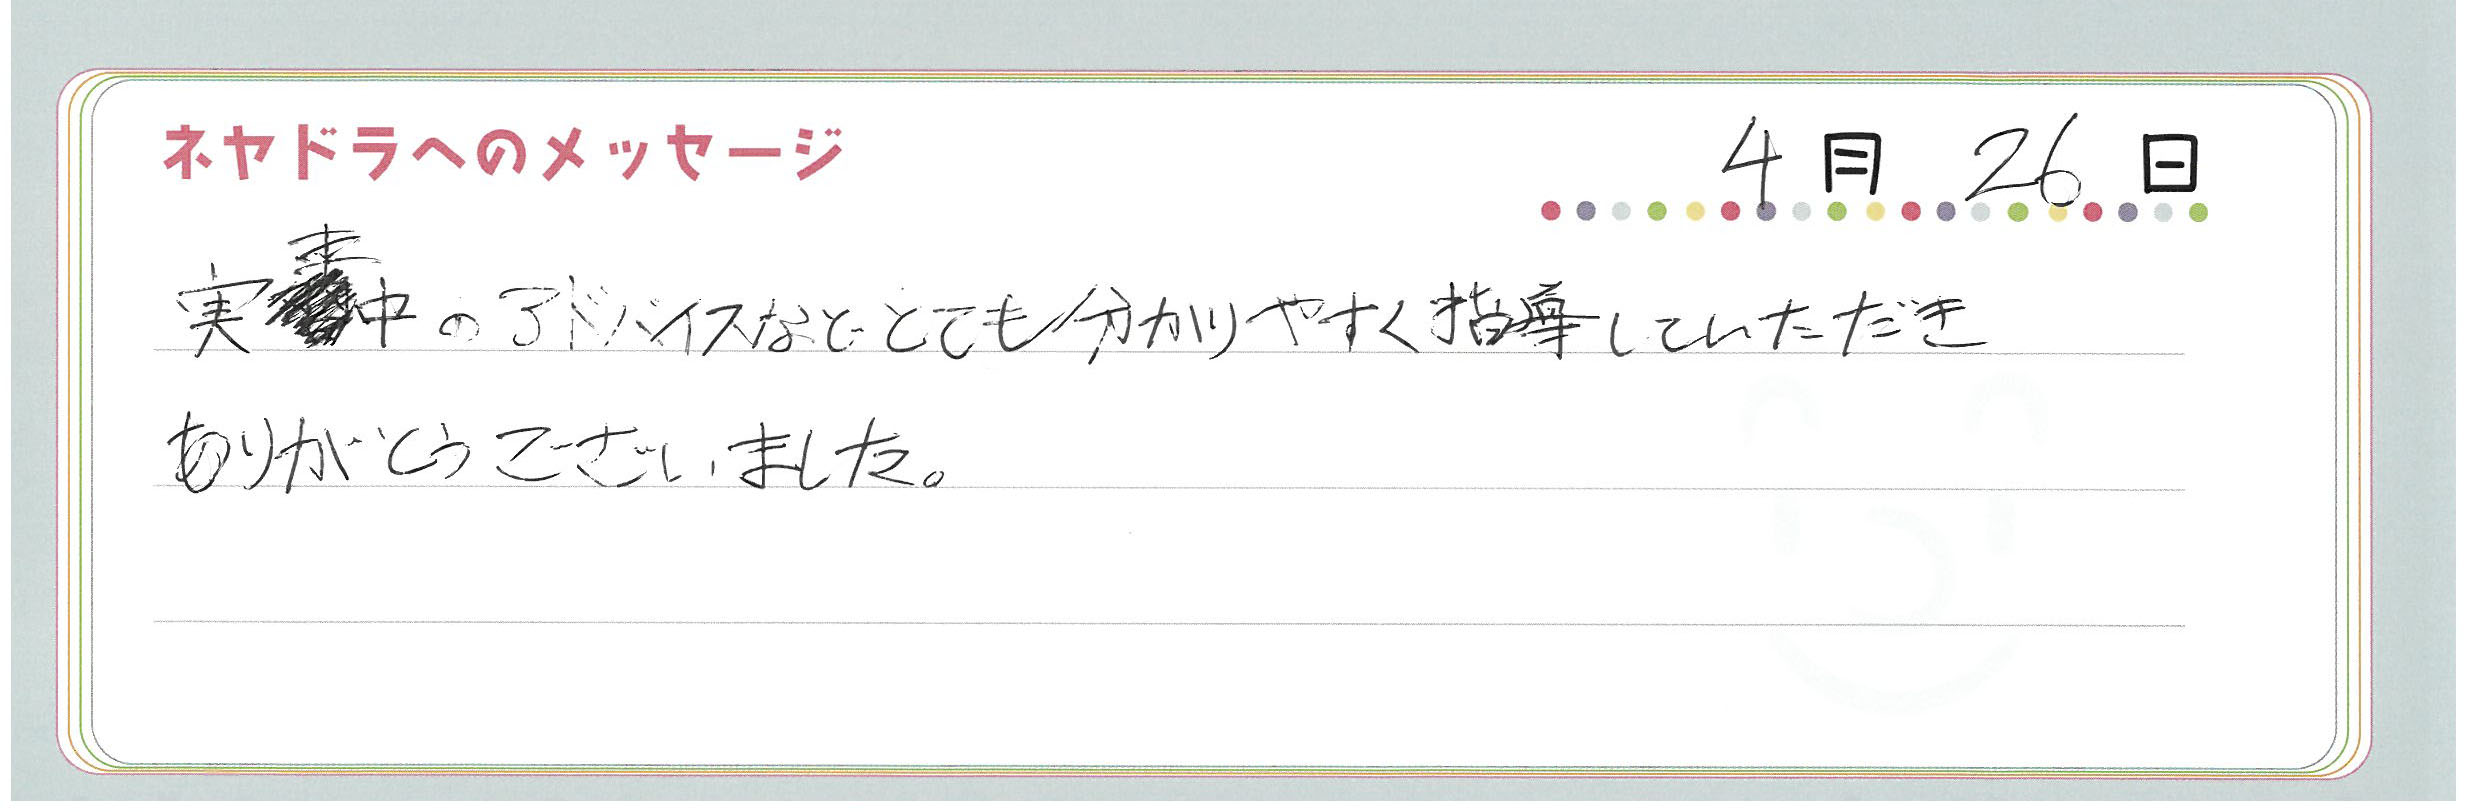 ネヤドラへのメッセージ
4月26日
実車中のアドバイスなどとても分かりやすく指導していただき
ありがとうございました。